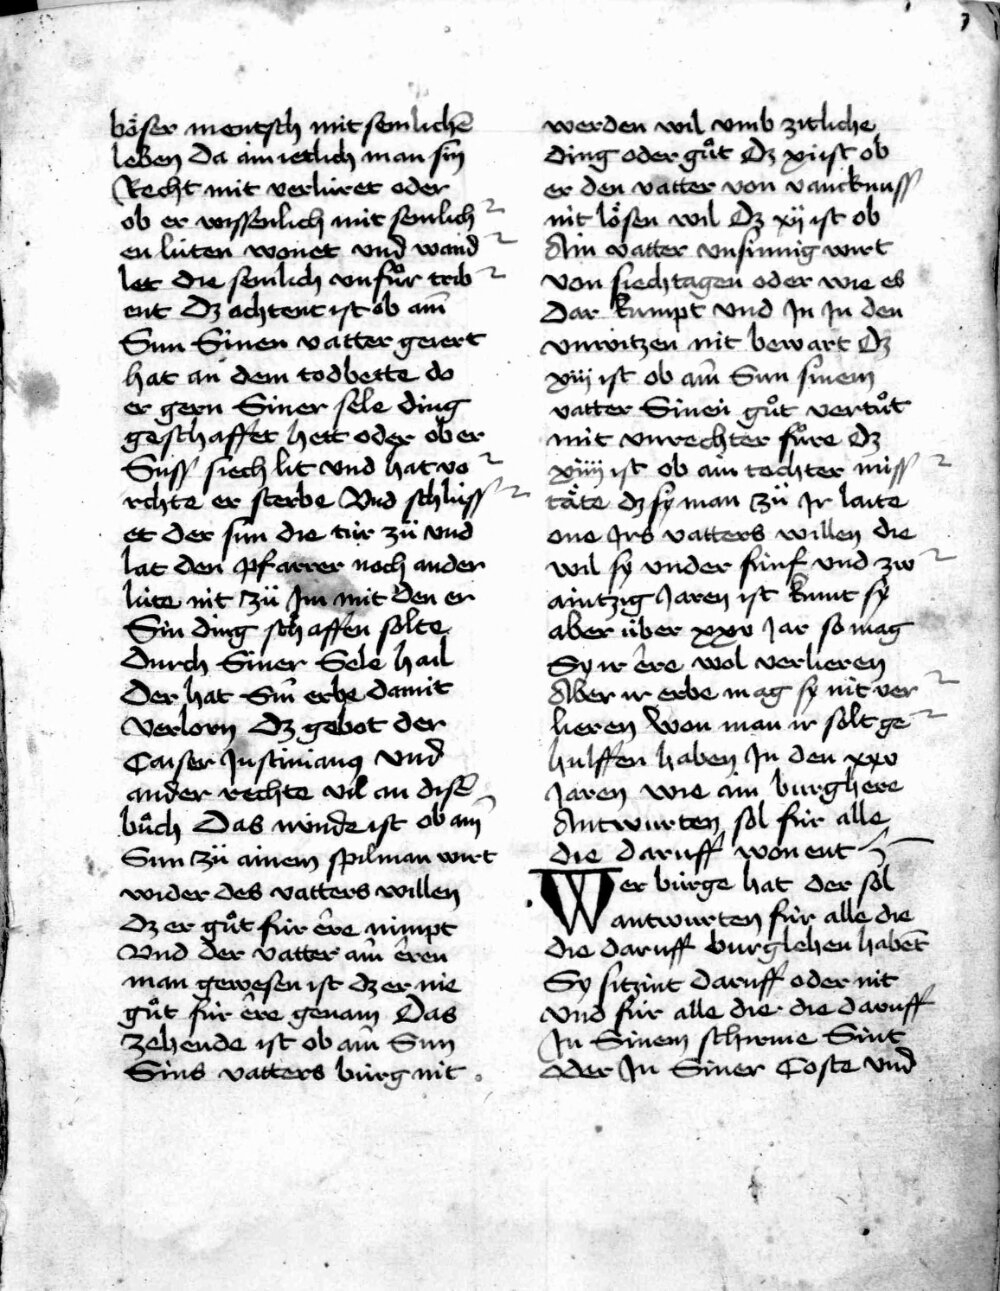 7
böser mentsch mit semlichē
leben Da ain ietlich man sin
Recht mit verlüret oder
ob er wissenlich mit semlich
en lüten wonet vnd wand
let die semlich vnfůr trib
ent Dz achtent ist ob ain
Sun Sinen vatter geiert
hat an dem todbette do
er gern Siner sele ding
geschaffet hett oder ob er
Suss siech lit vnd hat vo
rchte er sterbe Vnd schlüss
et der sun die tür zü vnd
lat den pfarrer noch ander
lüte nit zü Jm mit den er
Sin ding schaffen solte
Durch Siner Sele hail
Der hat Sin erbe damit
Verlorn Dz gebot der
Caiser Justinianus vnd
ander rechte vil an disē
bůch Das nünde ist ob ain
Sun zü ainem spilman wirt
wider des vatters willen
dz er gůt für ēre nimpt
Vnd der vatter ain ēren
man gewesen ist dz er nie
gůt für ēre genam Das
zehende ist ob ain Sun
Sins vatters bürg nit
werden wil vmb zitliche
ding oder gůt Dz xj ist ob
er den vatter von vancknuss
nit lösen wil Dz xij ist ob
Ain vatter vnsinnig wirt
von siechtagen oder wie es
Dar kumpt vnd Jn Jn den
vnwitzen nit bewart Dz
xiij ist ob ain Sun sinem
vatter Sinen gůt vertůt
mit vnrechter fůre Dz
xiiij ist ob ain tochter miss
täte dz sy man zü Jr laite
one Jrs vatters willen die
wil sy vnder fünf vnd zw
aintzig Jaren ist kumt sy
aber über xxv Jar so mag
Sy ir ēre wol verlieren
Aber ir erbe mag sy nit ver
lieren Won man ir solt ge
hulffen haben Jn den xxv
Jaren wie ain burghere
Antwurten sol für alle
die daruff wonent
Wer bürge hat der sol
antwurten für alle die
die daruff burglehen habēt
Sy sitzint daruff oder nit
vnd für alle die die daruff
Jn Sinem schirme Sint
oder Jn Siner Coste vnd